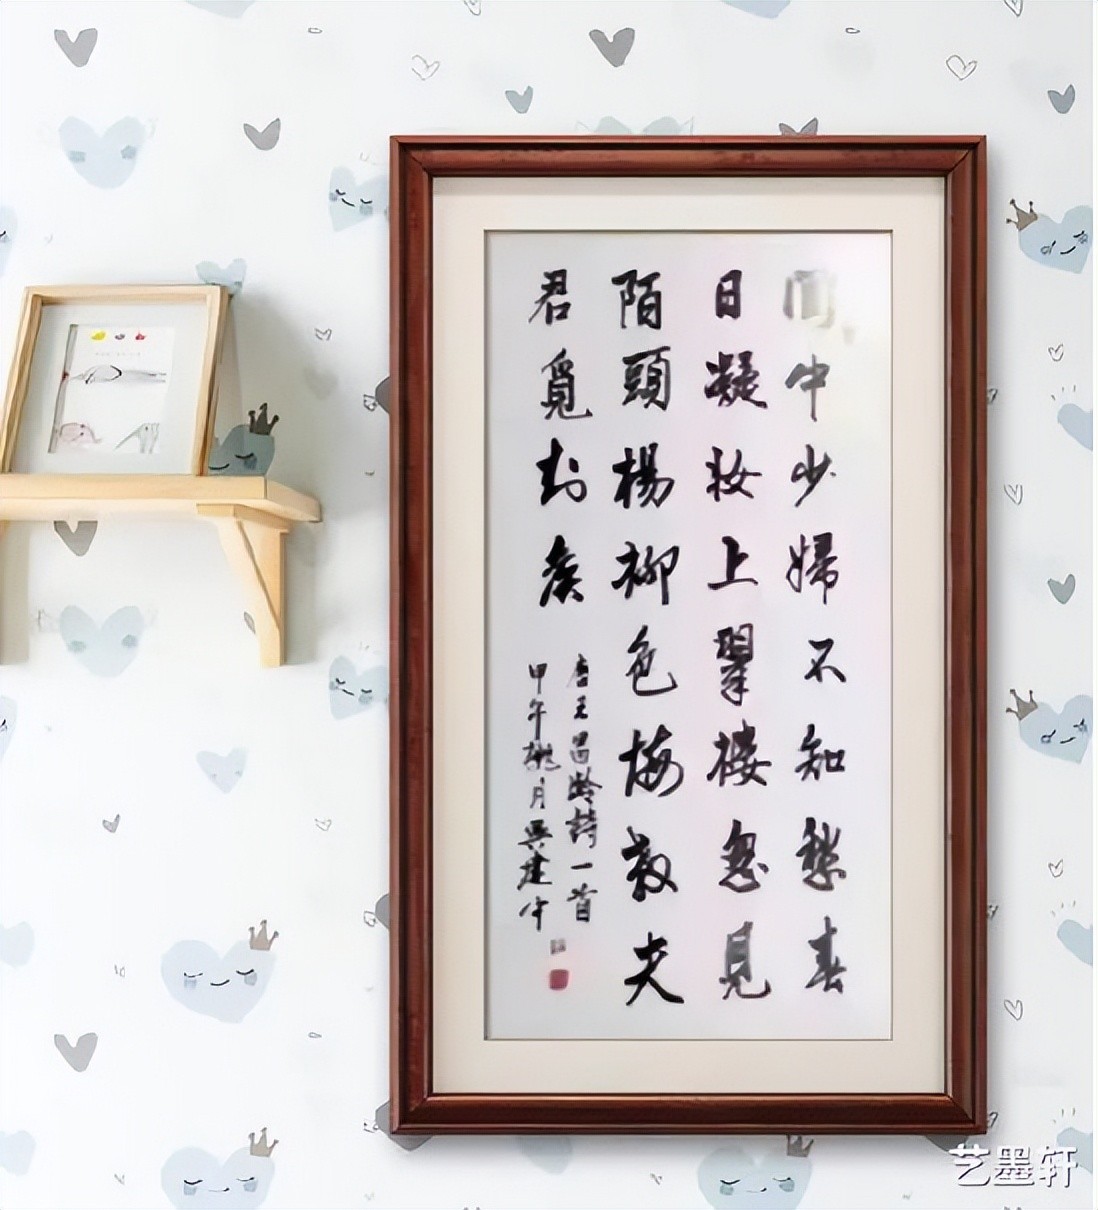 閨中少婦不知愁春
日凝妝上翠樓忽見
陌頭楊柳色悔教夫
君覓封侯
唐王昌齡詩一首
甲午桃月吳建
艺墨轩